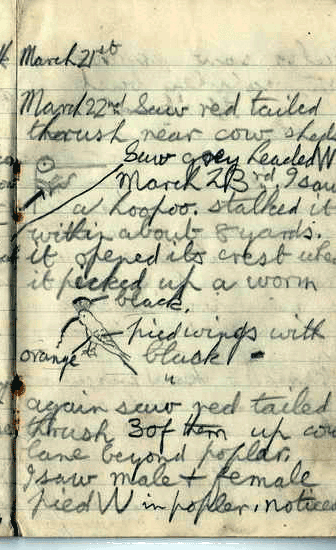 March 21st
March 22nd Saw red tailed
thrush near cow shed
Saw grey headed W
March 23rd. I saw
a hoopoe. stalked it
within about 8 yards.
it opened its crest when
it picked up a worm
black.
pied wings with
orange black
again saw red tailed
thrush 3 of them up cow
lane beyond poplar.
I saw male + female
pied W in popler. noticed